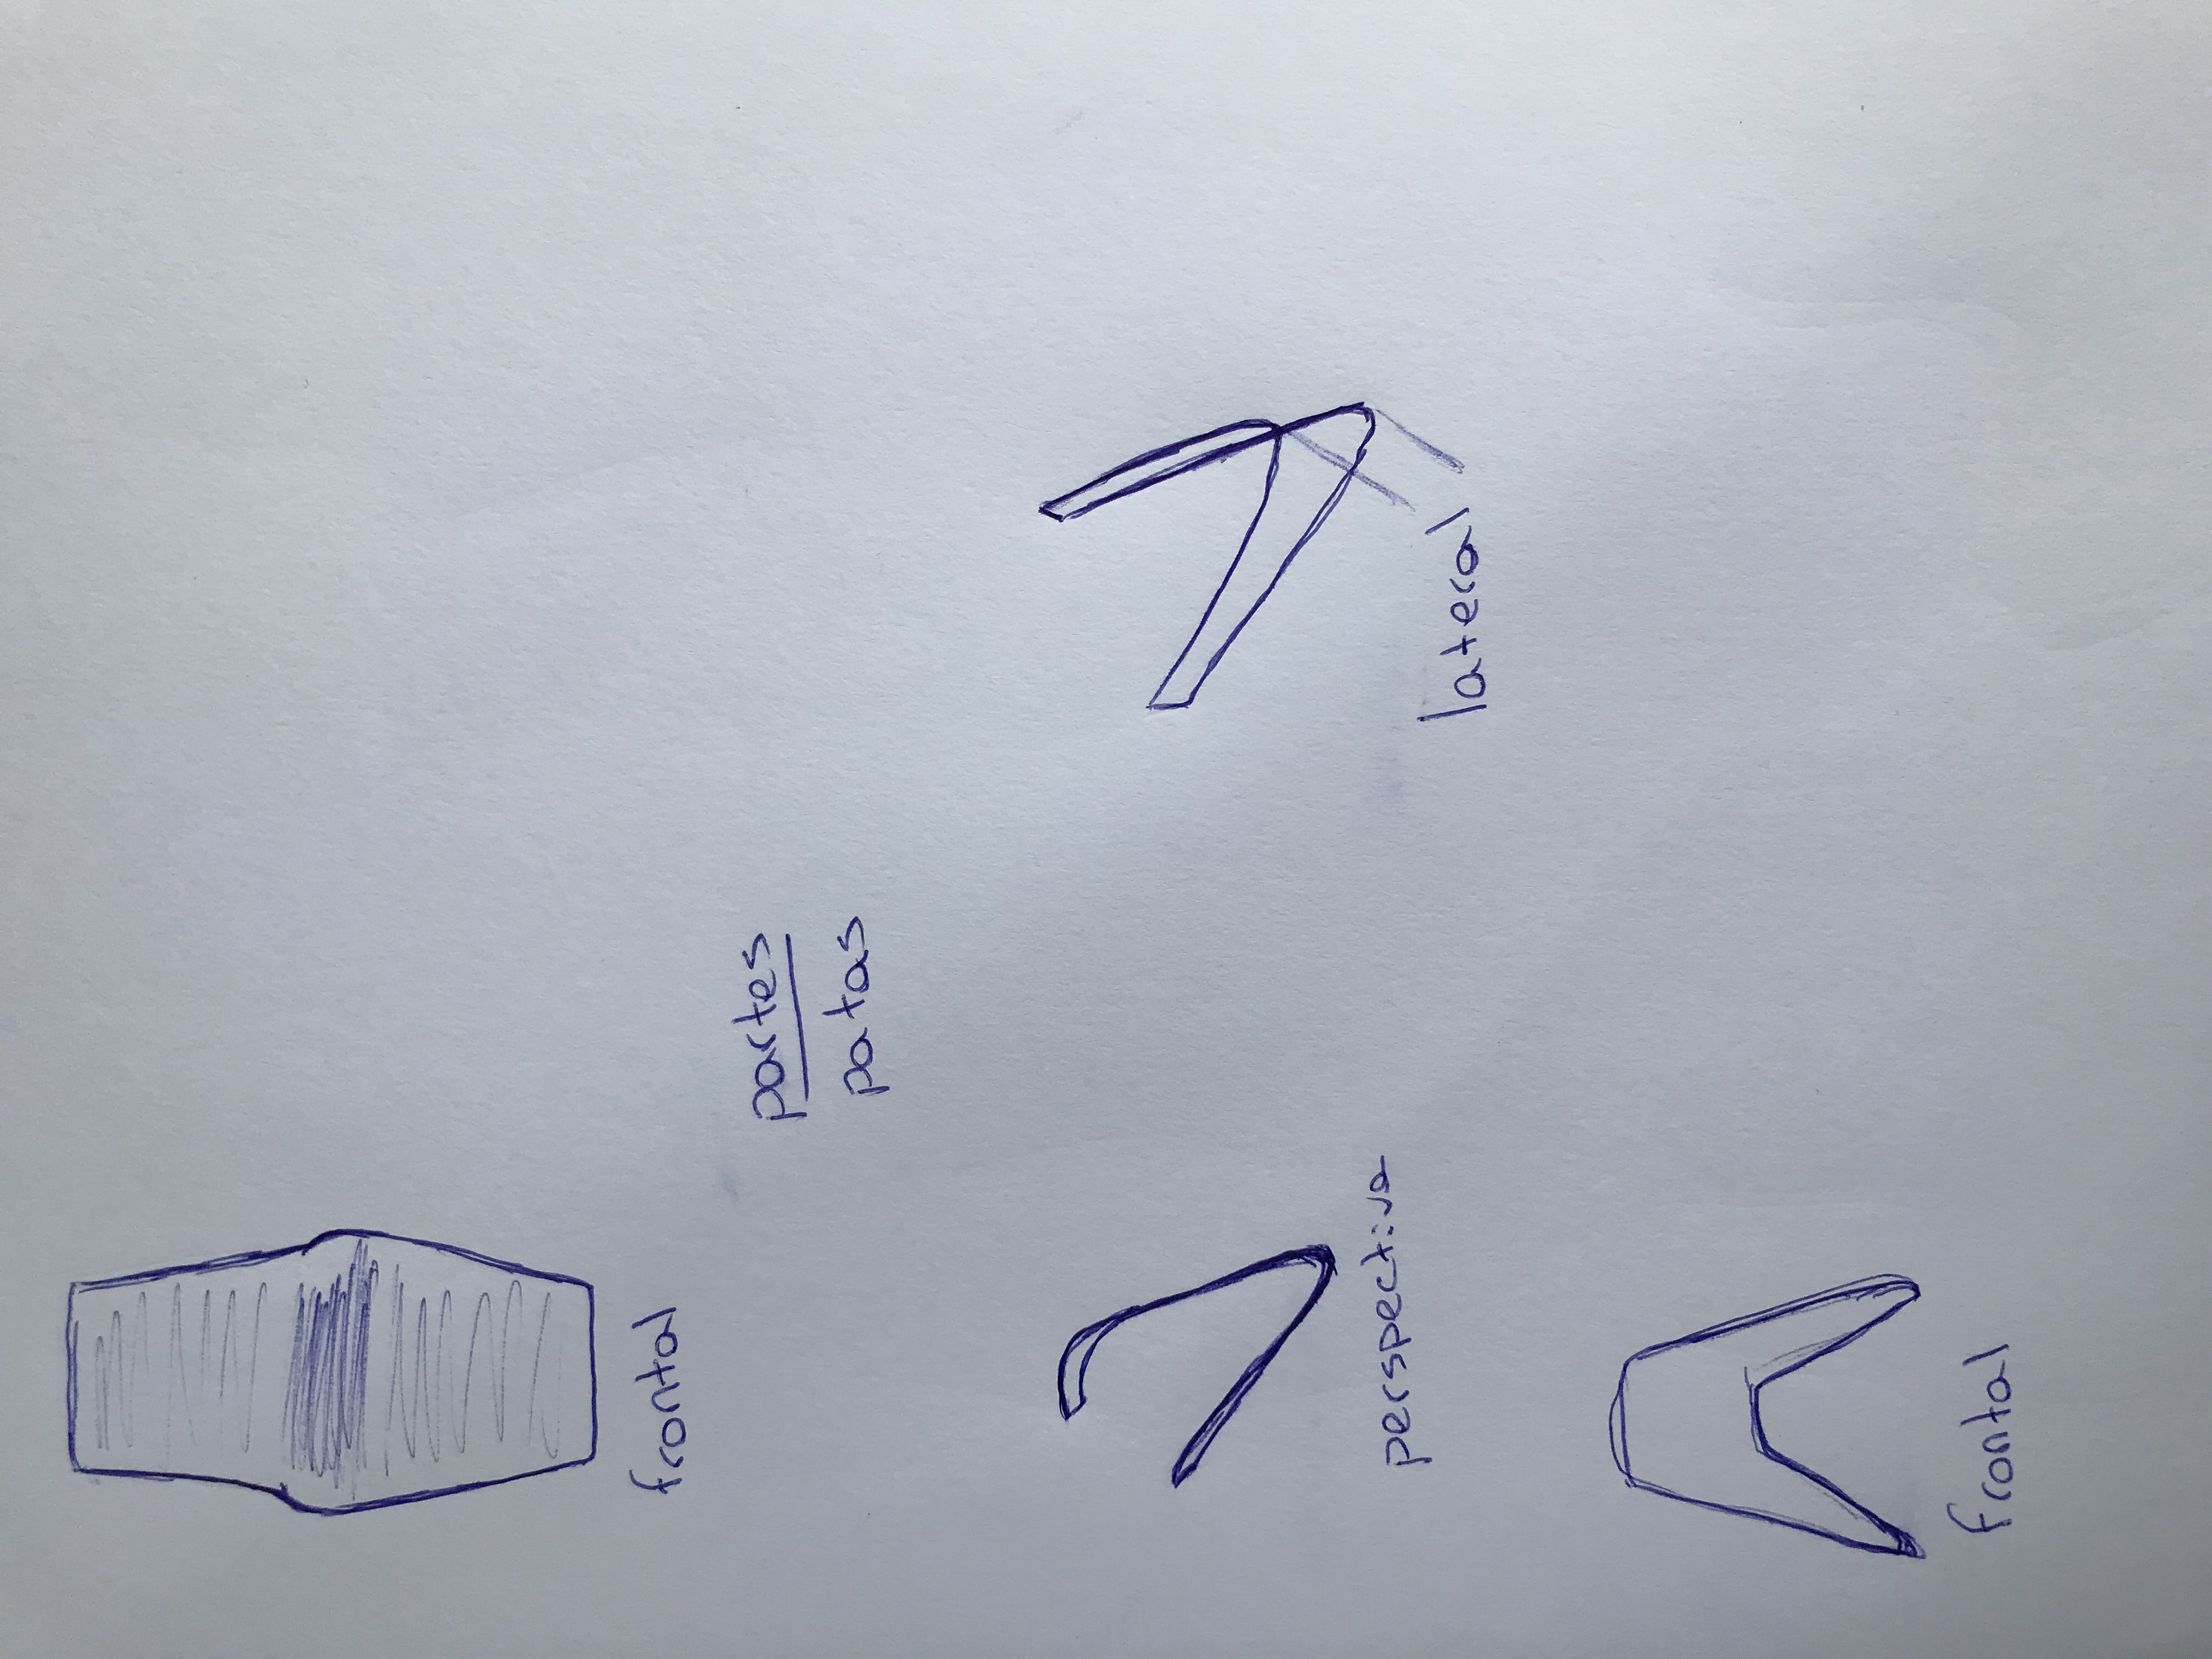 frontal
partes
patas
perspectiva
lateral
frontal